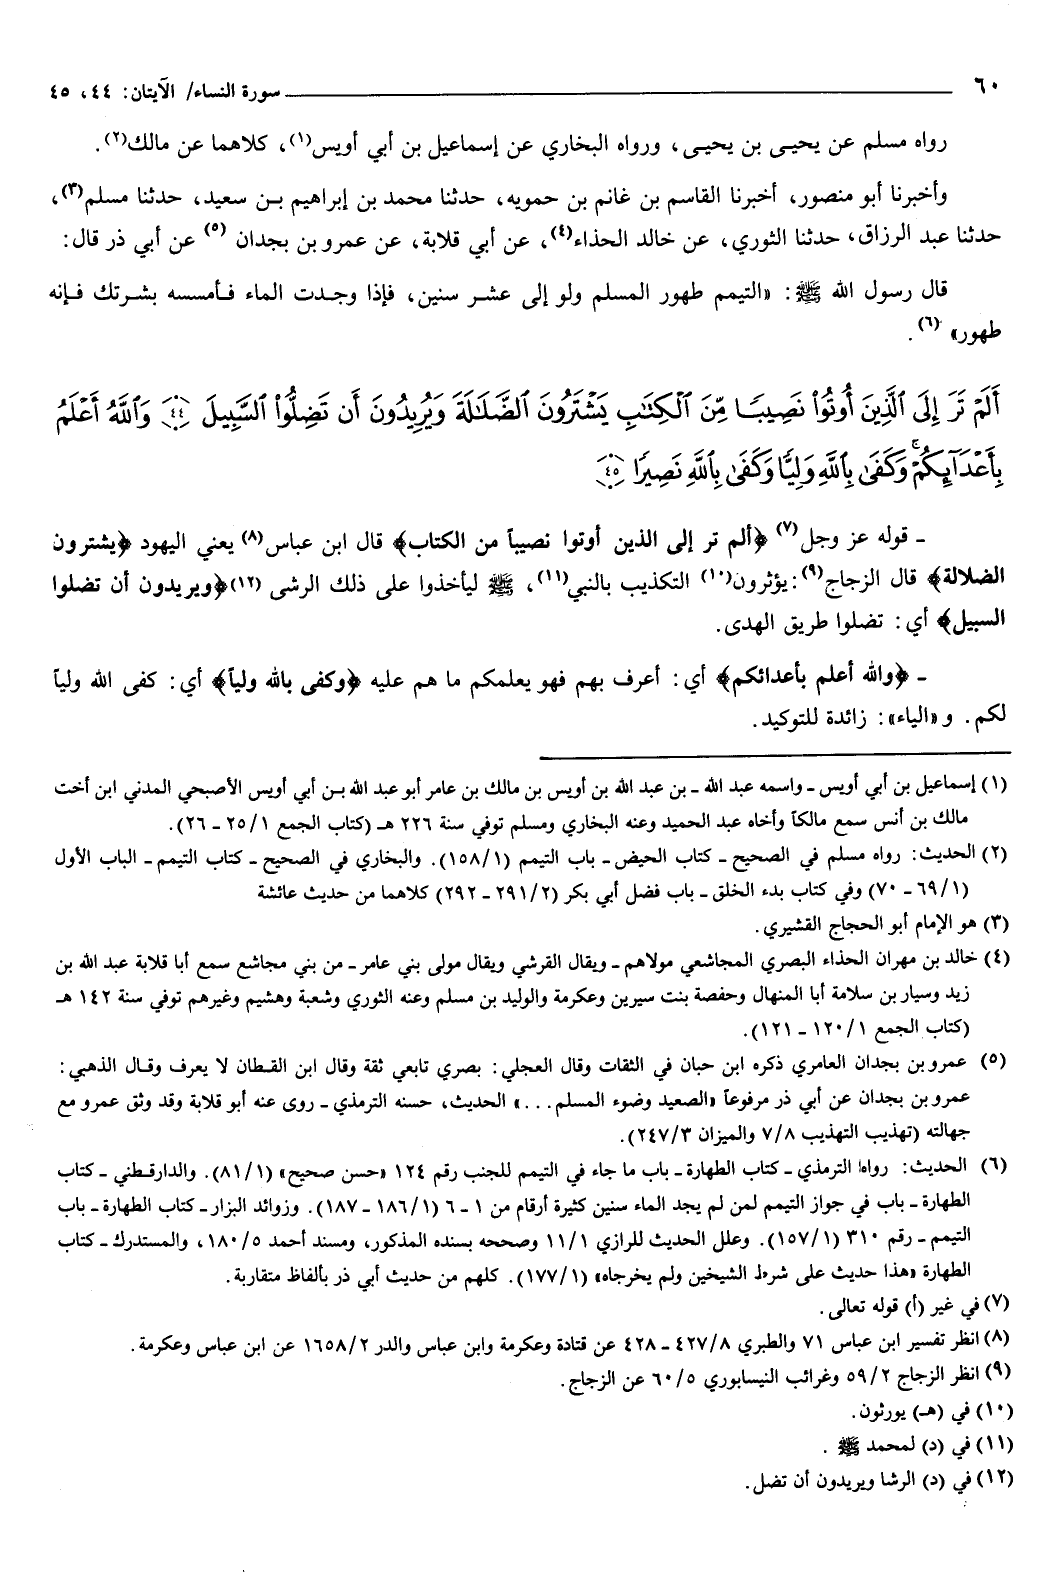 ٦٠ سورة النساء/ الآيتان: ٤٤، ٤٥
رواه مسلم عن يحيـى بن يحيـى، ورواه البخاري عن إسماعيل بن أبي أويس(١)، كلاهما عن مالك(٢).
وأخبرنا أبو منصور، أخبرنا القاسم بن غانم بن حمويه، حدثنا محمد بن إبراهيم بـن سعيد، حدثنا مسلم(٣)،
حدثنا عبد الرزاق، حدثنا الثوري، عن خالد الحذاء(٤)، عن أبي قلابة، عن عمرو بن بجدان (٥) عن أبي ذر قال:
قال رسول الله ﷺ: «التيمم طهور المسلم ولو إلى عشـر سنين، فإذا وجـدت الماء فـأمسسه بشـرتك فـإنه
طهور» (٦).
أَلَمْ تَرَ إِلَى ٱلَّذِينَ أُوتُوا۟ نَصِيبًا مِّنَ ٱلْكِتَٰبِ يَشْتَرُونَ ٱلضَّلَٰلَةَ وَيُرِيدُونَ أَن تَضِلُّوا۟ ٱلسَّبِيلَ ۝٤٤ وَٱللَّهُ أَعْلَمُ
بِأَعْدَآئِكُمْ ۚ وَكَفَىٰ بِٱللَّهِ وَلِيًّا وَكَفَىٰ بِٱللَّهِ نَصِيرًا ۝٤٥
ـ قوله عز وجل(٧) ﴿ألم تر إلى الذين أوتوا نصيباً من الكتاب﴾ قال ابن عباس(٨) يعني اليهود ﴿يشترون
الضلالة﴾ قال الزجاج(٩): يؤثرون(١٠) التكذيب بالنبي(١١)، ﷺ ليأخذوا على ذلك الرشى (١٢)﴿ويريدون أن تضلوا
السبيل﴾ أي: تضلوا طريق الهدى.
ـ ﴿والله أعلم بأعدائكم﴾ أي: أعرف بهم فهو يعلمكم ما هم عليه ﴿وكفى بالله ولياً﴾ أي: كفى الله ولياً
لكم. و«الياء»: زائدة للتوكيد.
(١) إسماعيل بن أبي أويس ـ واسمه عبد الله ـ بن عبد الله بن أويس بن مالك بن عامر أبو عبد الله بـن أبي أويس الأصبحي المدني ابن أخت
مالك بن أنس سمع مالكاً وأخاه عبد الحميد وعنه البخاري ومسلم توفي سنة ٢٢٦ هـ (كتاب الجمع ١/٢٥ ـ ٢٦).
(٢) الحديث: رواه مسلم في الصحيح ـ كتاب الحيض ـ باب التيمم (١/١٥٨). والبخاري في الصحيح ـ كتاب التيمم ـ الباب الأول
(١/٦٩ ـ ٧٠) وفي كتاب بدء الخلق ـ باب فضل أبي بكر (٢/٢٩١ ـ ٢٩٢) كلاهما من حديث عائشة
(٣) هو الإمام أبو الحجاج القشيري.
(٤) خالد بن مهران الحذاء البصري المجاشعي مولاهم ـ ويقال القرشي ويقال مولى بني عامر ـ من بني مجاشع سمع أبا قلابة عبد الله بن
زيد وسيار بن سلامة أبا المنهال وحفصة بنت سيرين وعكرمة والوليد بن مسلم وعنه الثوري وشعبة وهشيم وغيرهم توفي سنة ١٤٢ هـ
(كتاب الجمع ١/١٢٠ ـ ١٢١).
(٥) عمرو بن بجدان العامري ذكره ابن حبان في الثقات وقال العجلي: بصري تابعي ثقة وقال ابن القـطان لا يعرف وقـال الذهبي:
عمرو بن بجدان عن أبي ذر مرفوعاً «الصعيد وضوء المسلم...» الحديث، حسنه الترمذي ـ روى عنه أبو قلابة وقد وثق عمرو مع
جهالته (تهذيب التهذيب ٧/٨ والميزان ٢٤٧/٣).
(٦) الحديث: رواه الترمذي ـ كتاب الطهارة ـ باب ما جاء في التيمم للجنب رقم ١٢٤ «حسن صحيح» (١/٨١). والدارقطني ـ كتاب
الطهارة ـ باب في جواز التيمم لمن لم يجد الماء سنين كثيرة أرقام من ١ ـ ٦ (١/١٨٦ ـ ١٨٧). وزوائد البزار ـ كتاب الطهارة ـ باب
التيمم ـ رقم ٣١٠ (١/١٥٧). وعلل الحديث للرازي ١١/١ وصححه بسنده المذكور، ومسند أحمد ١٨٠/٥، والمستدرك ـ كتاب
الطهارة «هذا حديث على شرط الشيخين ولم يخرجاه» (١/١٧٧). كلهم من حديث أبي ذر بألفاظ متقاربة.
(٧) في غير (أ) قوله تعالى.
(٨) انظر تفسير ابن عباس ٧١ والطبري ٤٢٧/٨ ـ ٤٢٨ عن قتادة وعكرمة وابن عباس والدر ١٦٥٨/٢ عن ابن عباس وعكرمة.
(٩) انظر الزجاج ٥٩/٢ وغرائب النيسابوري ٦٠/٥ عن الزجاج.
(١٠) في (هـ) يورثون.
(١١) في (د) لمحمد ﷺ.
(١٢) في (د) الرشا ويريدون أن تضل.